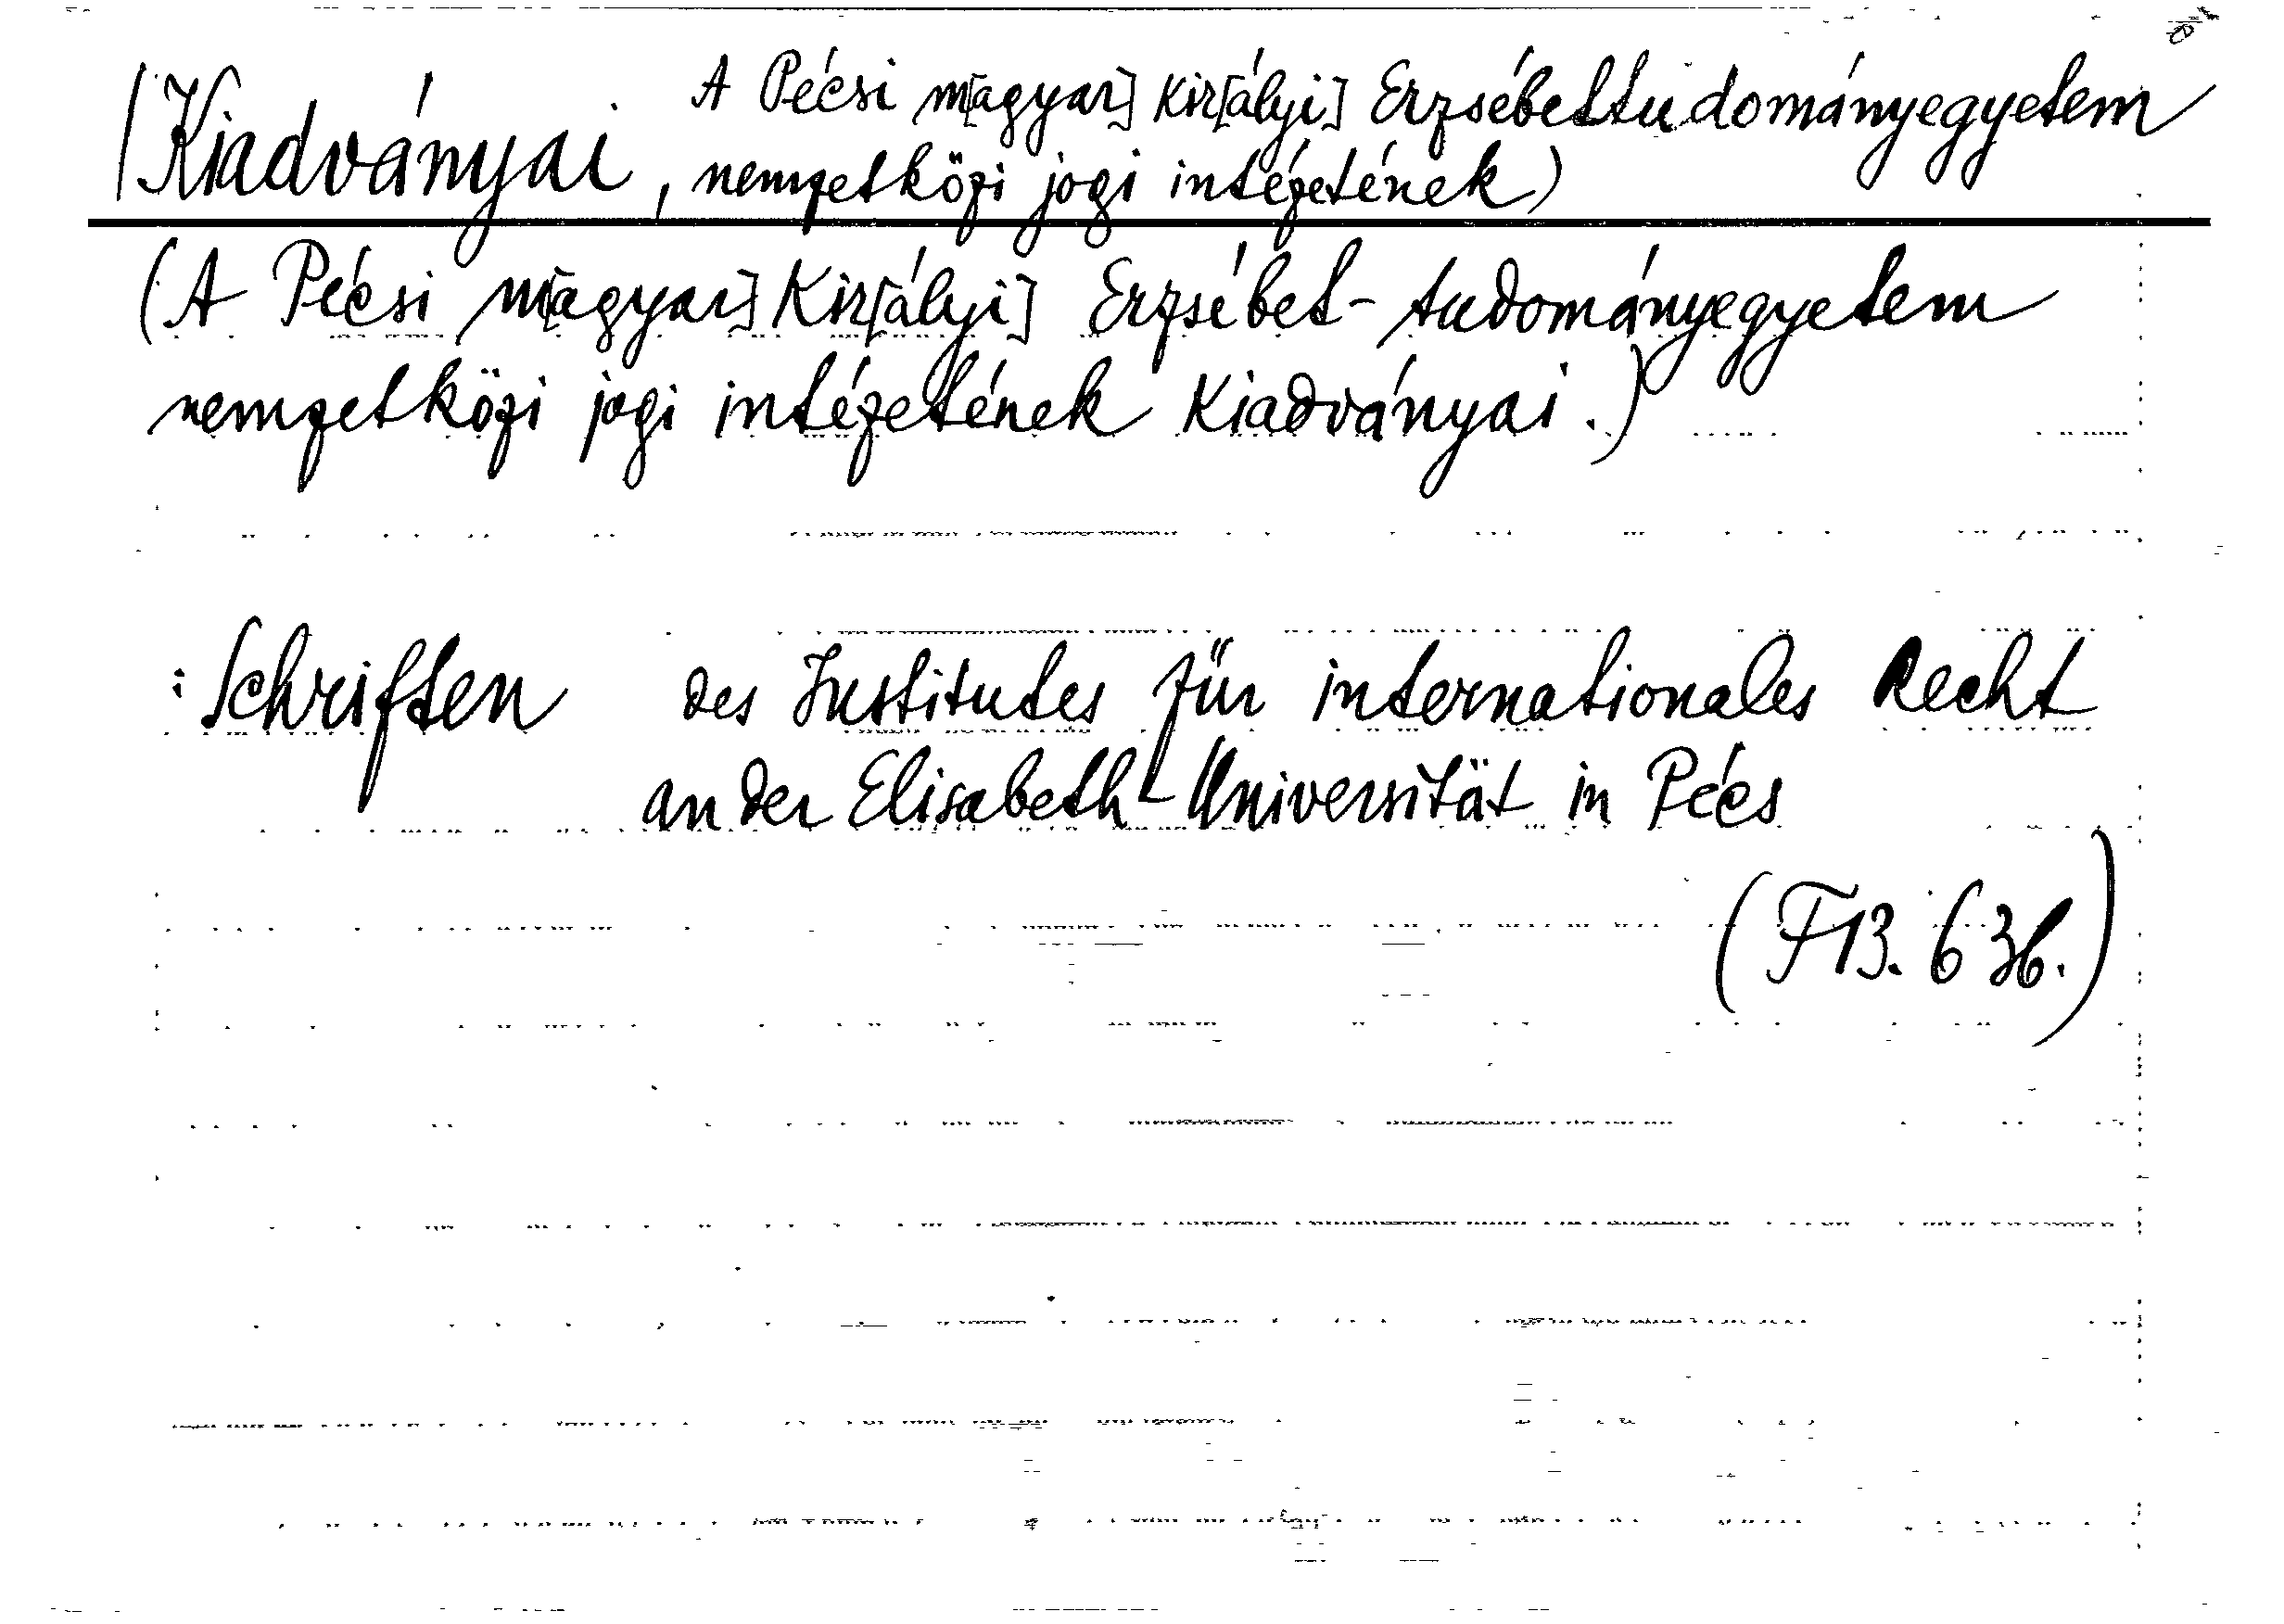 (Kiadványai, A Pécsi m[agyar] kir[ályi] Erzsébettudományegyetem
nemzetközi jogi intézetének)
(A Pécsi m[agyar] kir[ályi] Erzsébet-tudományegyetem
nemzetközi jogi intézetének kiadványai.)
: Schriften des Institutes für internationales Recht
an der Elisabeth-Universität in Pécs
(F13. 636.)